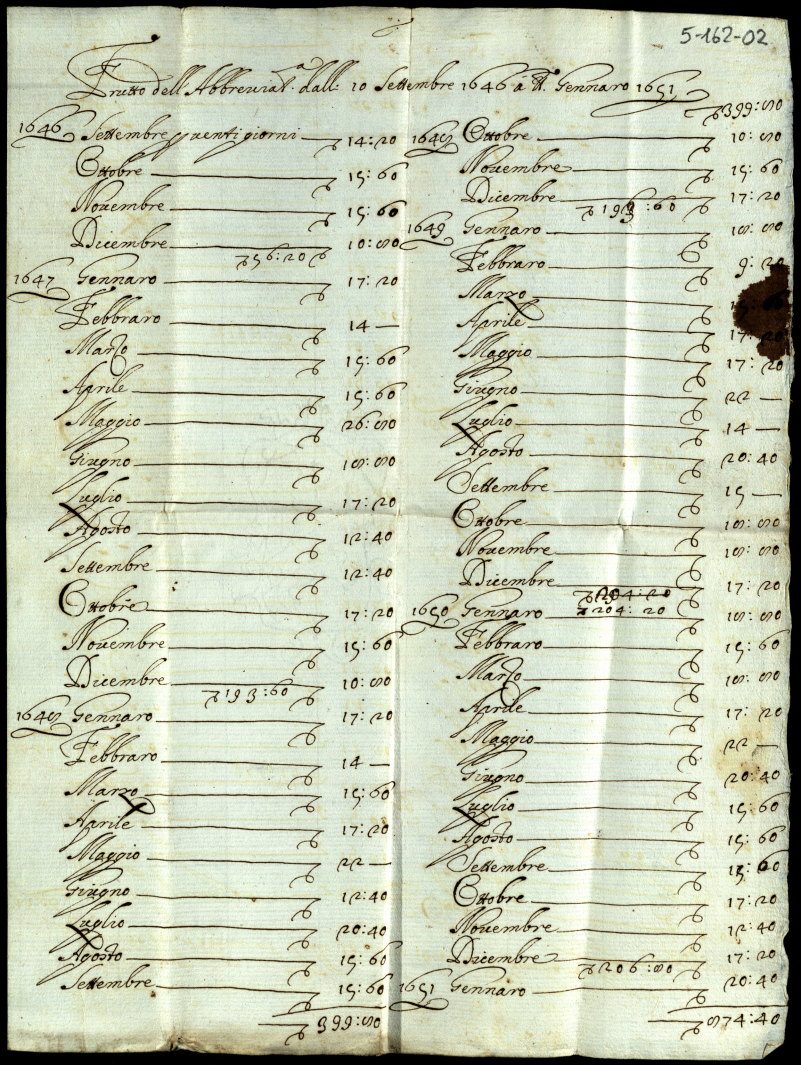 5-162-02
Frutto dell'Abbreviat.ᵃ dall: 10 Settembre 1646 á tt. Gennaro 1651
1646 Settembre p venti giorni 14:20
Ottobre 15:60
Novembre 15:60
Dicembre 10:80
56:20
1647 Gennaro 17:20
Febbraro 14 —
Marzo 15:60
Aprile 15:60
Maggio 26:80
Giugno 18:80
Luglio 17:20
Agosto 12:40
Settembre 12:40
Ottobre 17:20
Novembre 15:60
Dicembre 10:80
193:60
1648 Gennaro 17:20
Febbraro 14 —
Marzo 15:60
Aprile 17:20
Maggio 22 —
Giugno 12:40
Luglio 20:40
Agosto 15:60
Settembre 15:60
399:80
399:80
1648 Ottobre 10:80
Novembre 15:60
Dicembre 17:20
193:60
1649 Gennaro 18:80
Febbraro 9:20
Marzo 15:60
Aprile 17:20
Maggio 17:20
Giugno 22 —
Luglio 14 —
Agosto 20:40
Settembre 15 —
Ottobre 18:80
Novembre 18:80
Dicembre 17:20
204:20
204:20
1650 Gennaro 18:80
Febbraro 15:60
Marzo 18:80
Aprile 17:20
Maggio 22 —
Giugno 20:40
Luglio 15:60
Agosto 15:60
Settembre 15:60
Ottobre 17:20
Novembre 12:40
Dicembre 17:20
206:80
1651 Gennaro 20:40
874:40